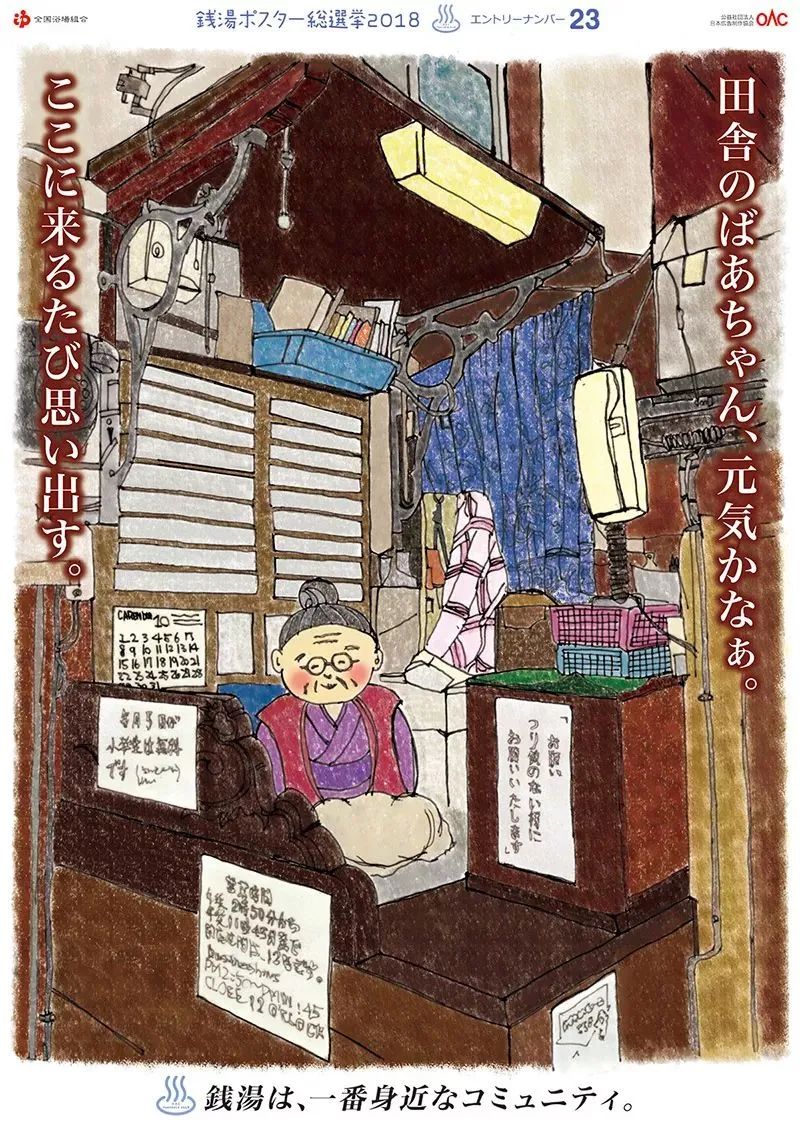 全国浴場組合
銭湯ポスター総選挙2018
エントリーナンバー 23
公益社団法人
日本広告制作協会
OAC
田舎のばあちゃん、元気かなぁ。
ここに来るたび思い出す。
10
8 9 10 11 12 13 14
15 16 17 18 19 20 21
22 23 24 25 26 27 28
小学生は無料
です
「お願い
つり銭のない様に
お願いいたします」
営業時間
午後2時50分から
午後11時45分まで
PM2:50〜PM11:45
銭湯は、一番身近なコミュニティ。